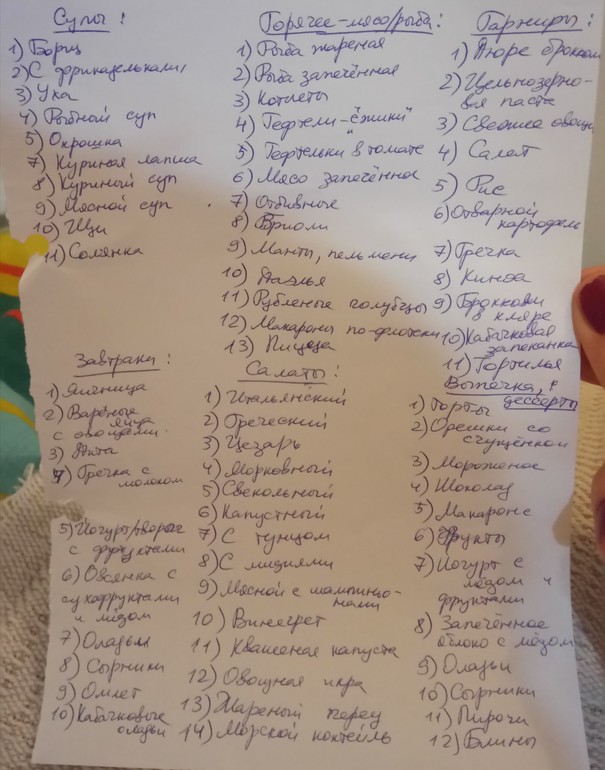 Супы:
1) Борщ
2) С фрикадельками
3) Уха
4) Рыбный суп
5) Окрошка
7) Куриная лапша
8) Куриный суп
9) Мясной суп
10) Щи
11) Солянка
Горячее-мясо/рыба:
1) Рыба жареная
2) Рыба запечённая
3) Котлеты
4) Тефтели-"ёжики"
5) Тефтельки в томате
6) Мясо запечённое
7) Отбивные
8)
9) Манты, пельмени
10) Паэлья
11) Рубленые голубцы
12) Макароны по-флотски
13) Пицца
Гарниры:
1) Пюре брокколи
2) Цельнозерно-
вая паста
3) Свежие овощи
4) Салат
5) Рис
6) Отварной
картофель
7) Гречка
8) Киноа
9) Брокколи
в кляре
10) Кабачковая
запеканка
11) Тортилья
Завтраки:
1) Яичница
2) Варёные
яйца
с овощами
3)
4) Гречка с
молоком
5) Йогурт/творог
с фруктами
6) Овсянка с
сухофруктами
и мёдом
7) Оладьи
8) Сырники
9) Омлет
10) Кабачковые
оладьи
Салаты:
1) Итальянский
2) Греческий
3) Цезарь
4) Морковный
5) Свекольный
6) Капустный
7) С тунцом
8) С мидиями
9) Мясной с шампиньо-
нами
10) Винегрет
11) Квашеная капуста
12) Овощная икра
13) Жареный перец
14) Морской коктейль
Выпечка,
десерты
1) Торты
2) Орешки со
сгущёнкой
3) Мороженое
4) Шоколад
5) Макаронс
6) Фрукты
7) Йогурт с
мёдом и
фруктами
8) Запечённое
яблоко с мёдом
9) Оладьи
10) Сырники
11) Пироги
12) Блины